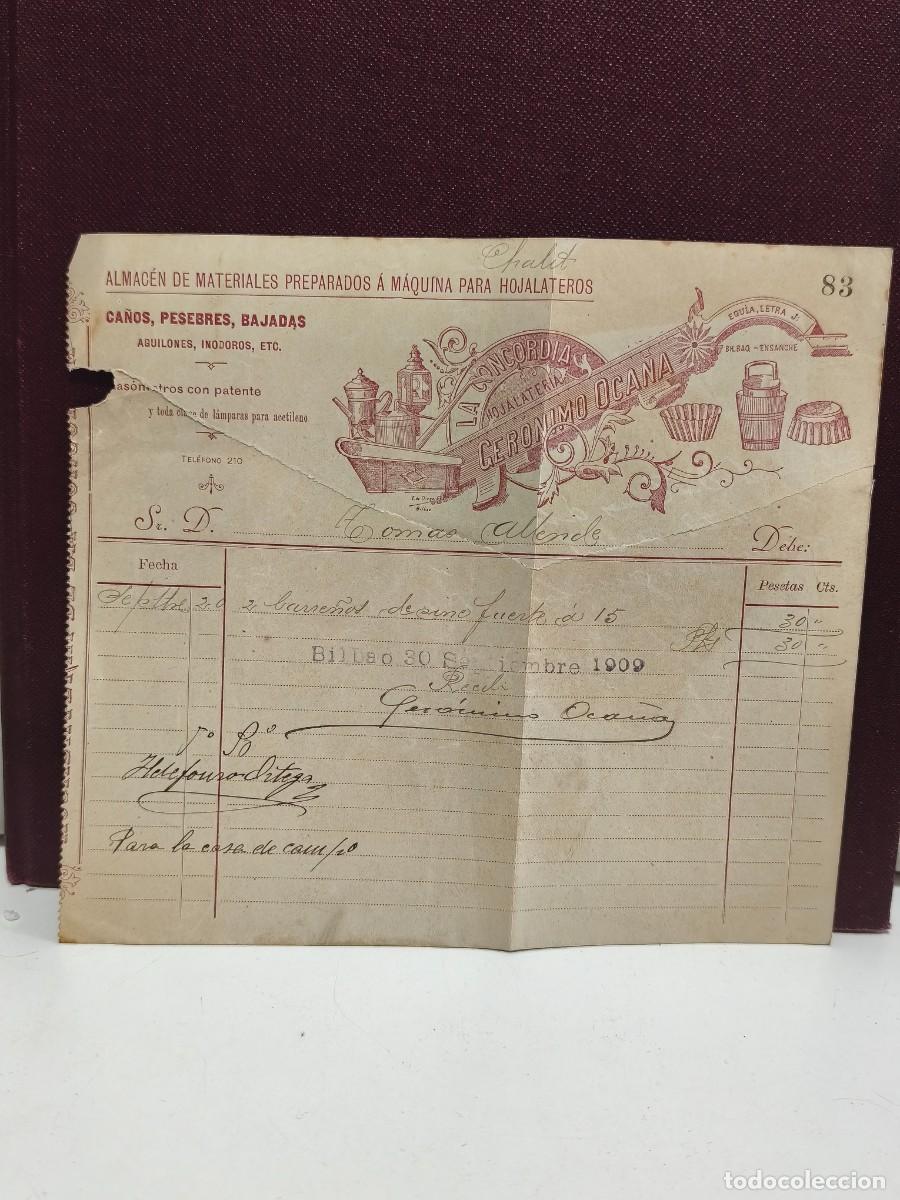 Chalet
83
ALMACÉN DE MATERIALES PREPARADOS Á MÁQUINA PARA HOJALATEROS
CAÑOS, PESEBRES, BAJADAS
AGUILONES, INODOROS, ETC.
con patente
y toda clase de lámparas para acetileno
TELÉFONO 210
LA CONCORDIA
HOJALATERÍA
GERONIMO OCAÑA
EGUÍA, LETRA J.
BILBAO - ENSANCHE
Sr. D. Tomas Allende
Debe:
Fecha
Pesetas Cts.
Septbre 20 2 barreños de zinc fuerte á 15 30 "
Pts 30 "
Bilbao 30 Septiembre 1909
Recibí
Gerónimo Ocaña
Vº Bº
Ildefonso Ortega
Para la casa de campo
todocoleccion